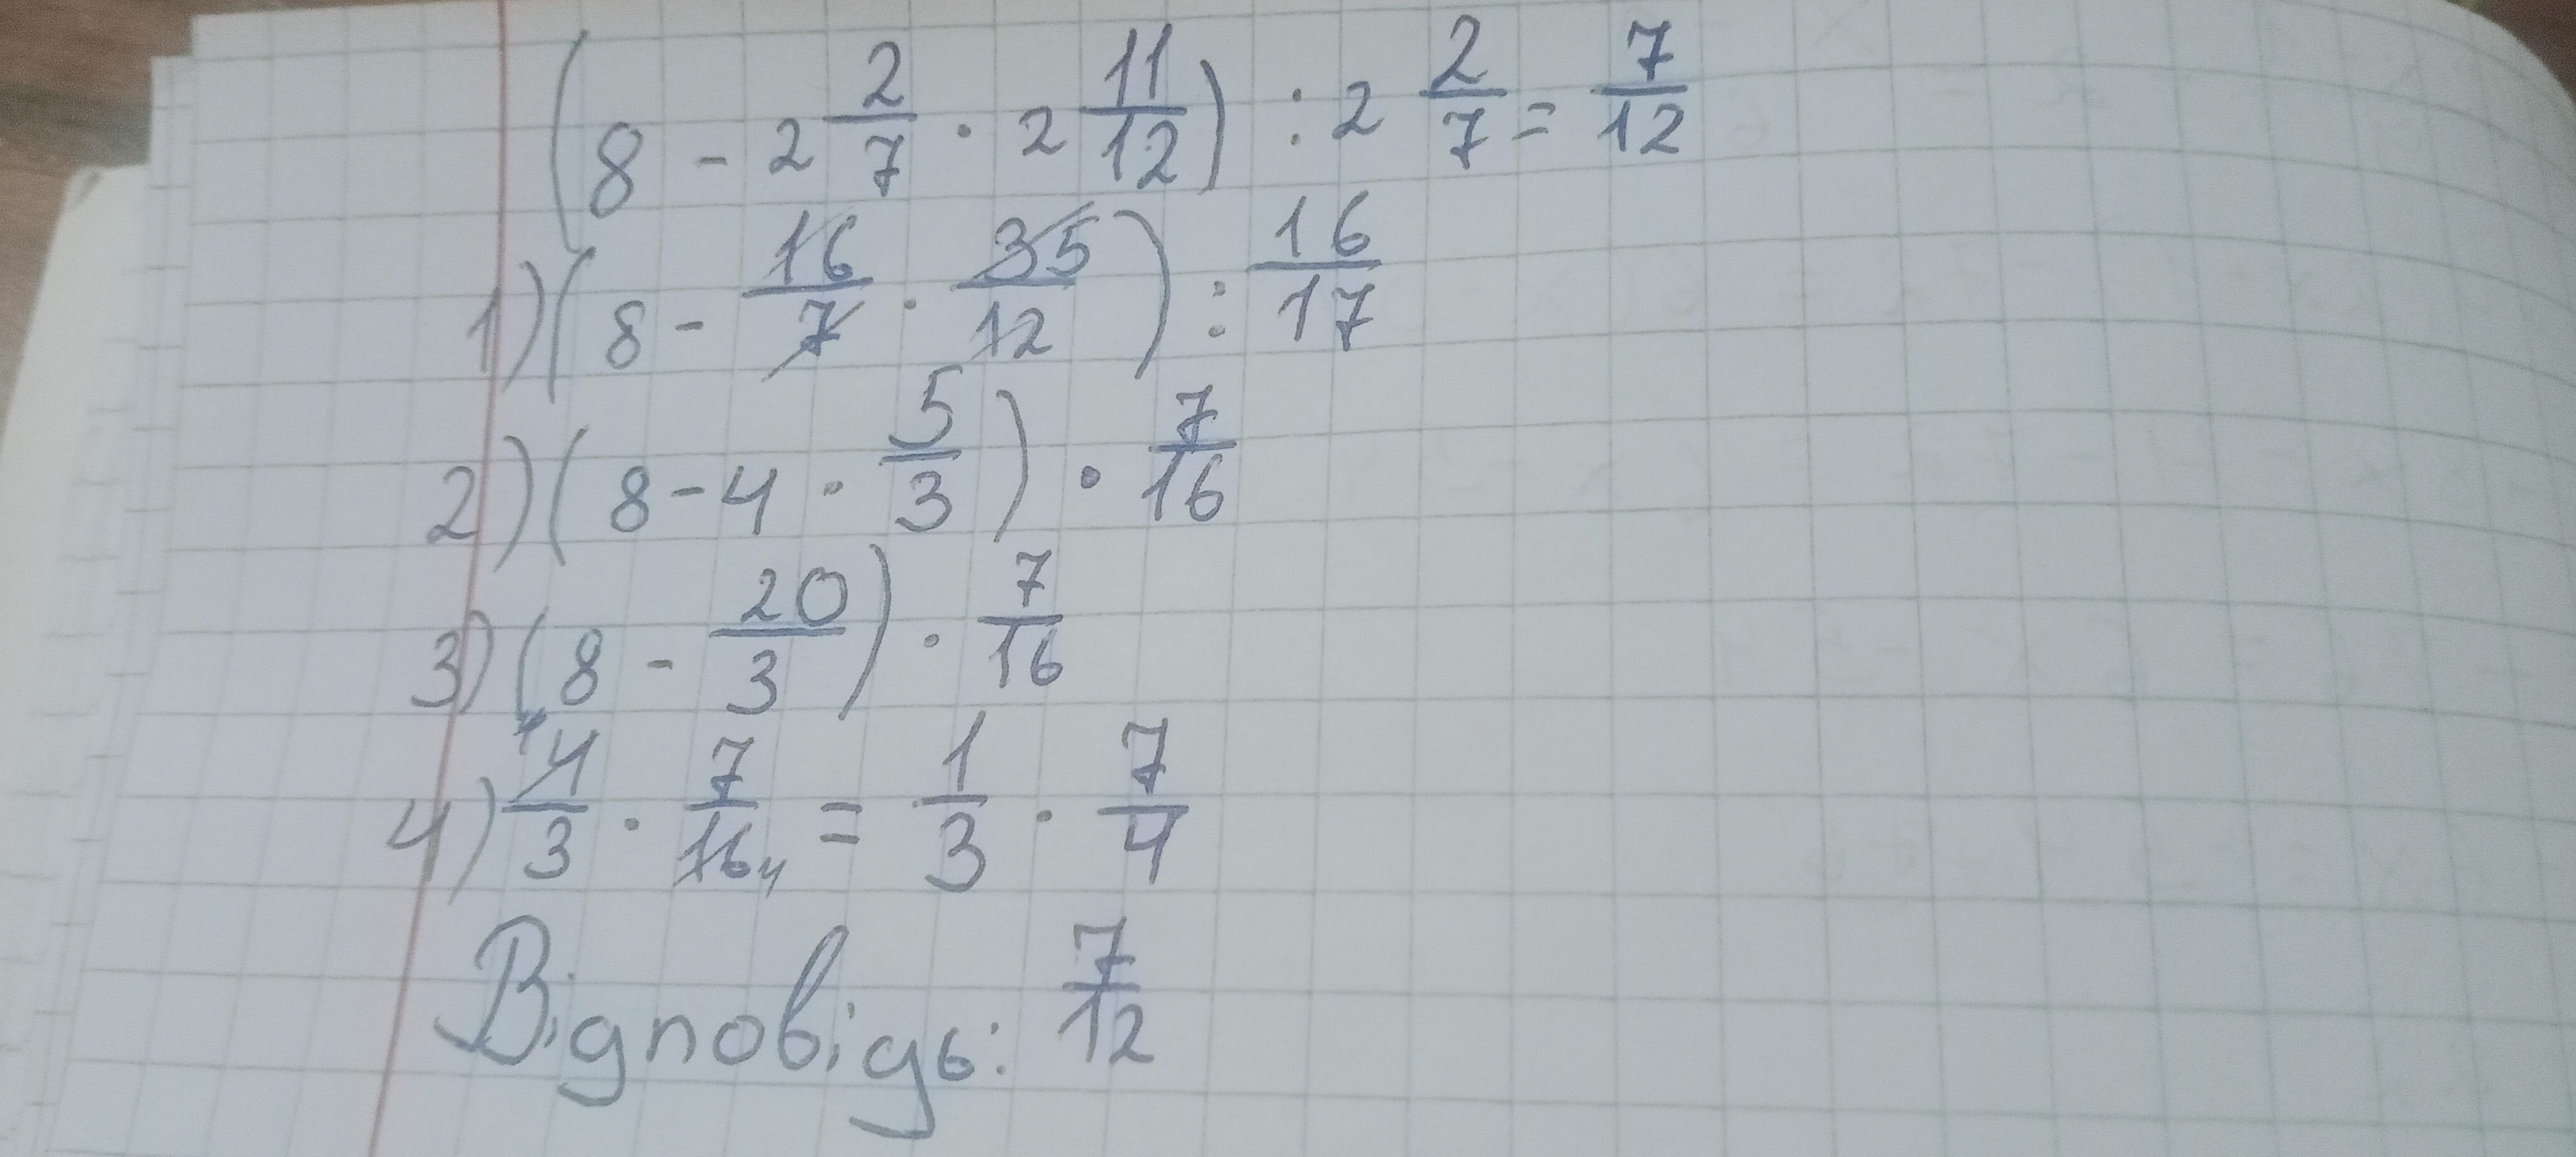 (8 - 2 2/7 · 2 11/12) : 2 2/7 = 7/12
1) (8 - 16/7 · 35/12) : 16/17
2) (8 - 4 · 5/3) · 7/16
3) (8 - 20/3) · 7/16
4) 4/3 · 7/16 = 1/3 · 7/4
Відповідь: 7/12